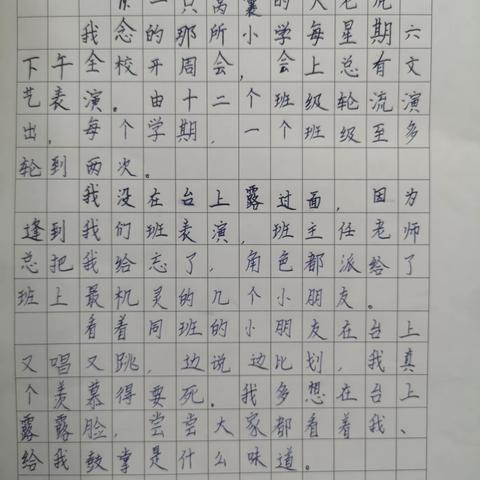 一只窝囊的大老虎
我念的那所小学每星期六
下午全校开周会，会上总有文
艺表演。由十二个班级轮流演
出，每个学期，一个班级至多
轮到两次。
我没在台上露过面，因为
逢到我们班表演，班主任老师
总把我给忘了，角色都派给了
班上最机灵的几个小朋友。
看着同班的小朋友在台上
又唱又跳，边说边比划，我真
个羡慕得要死。我多想在台上
露露脸，尝尝大家都看着我、
给我鼓掌是什么味道。